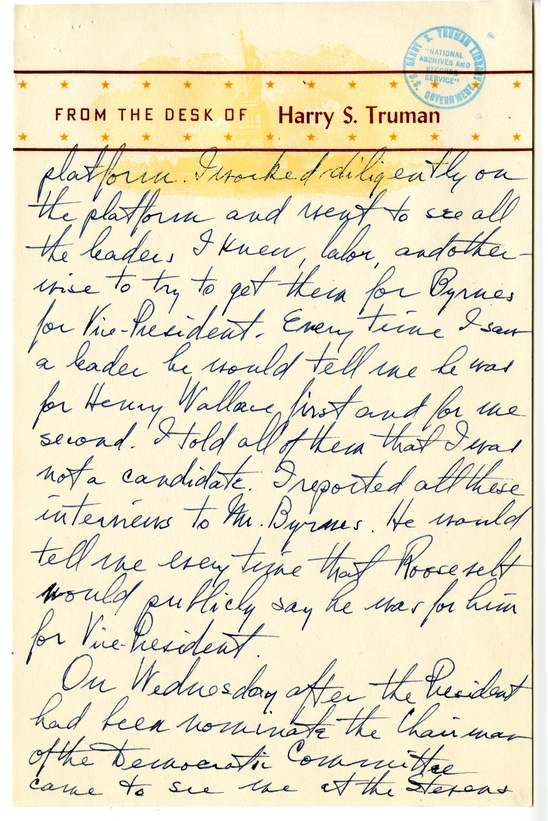 HARRY S. TRUMAN LIBRARY
"NATIONAL
ARCHIVES AND
RECORDS
SERVICE"
U.S. GOVERNMENT
FROM THE DESK OF Harry S. Truman
platform. I worked diligently on
the platform and went to see all
the leaders I knew, labor, and other-
wise to try to get them for Byrnes
for Vice-President. Every time I saw
a leader he would tell me he was
for Henry Wallace first and for me
second. I told all of them that I was
not a candidate. I reported all these
interviews to Mr. Byrnes. He would
tell me every time that Roosevelt
would publicly say he was for him
for Vice-President.
On Wednesday after the President
had been nominate the Chairman
of the Democratic Committee
came to see me at the Stevens